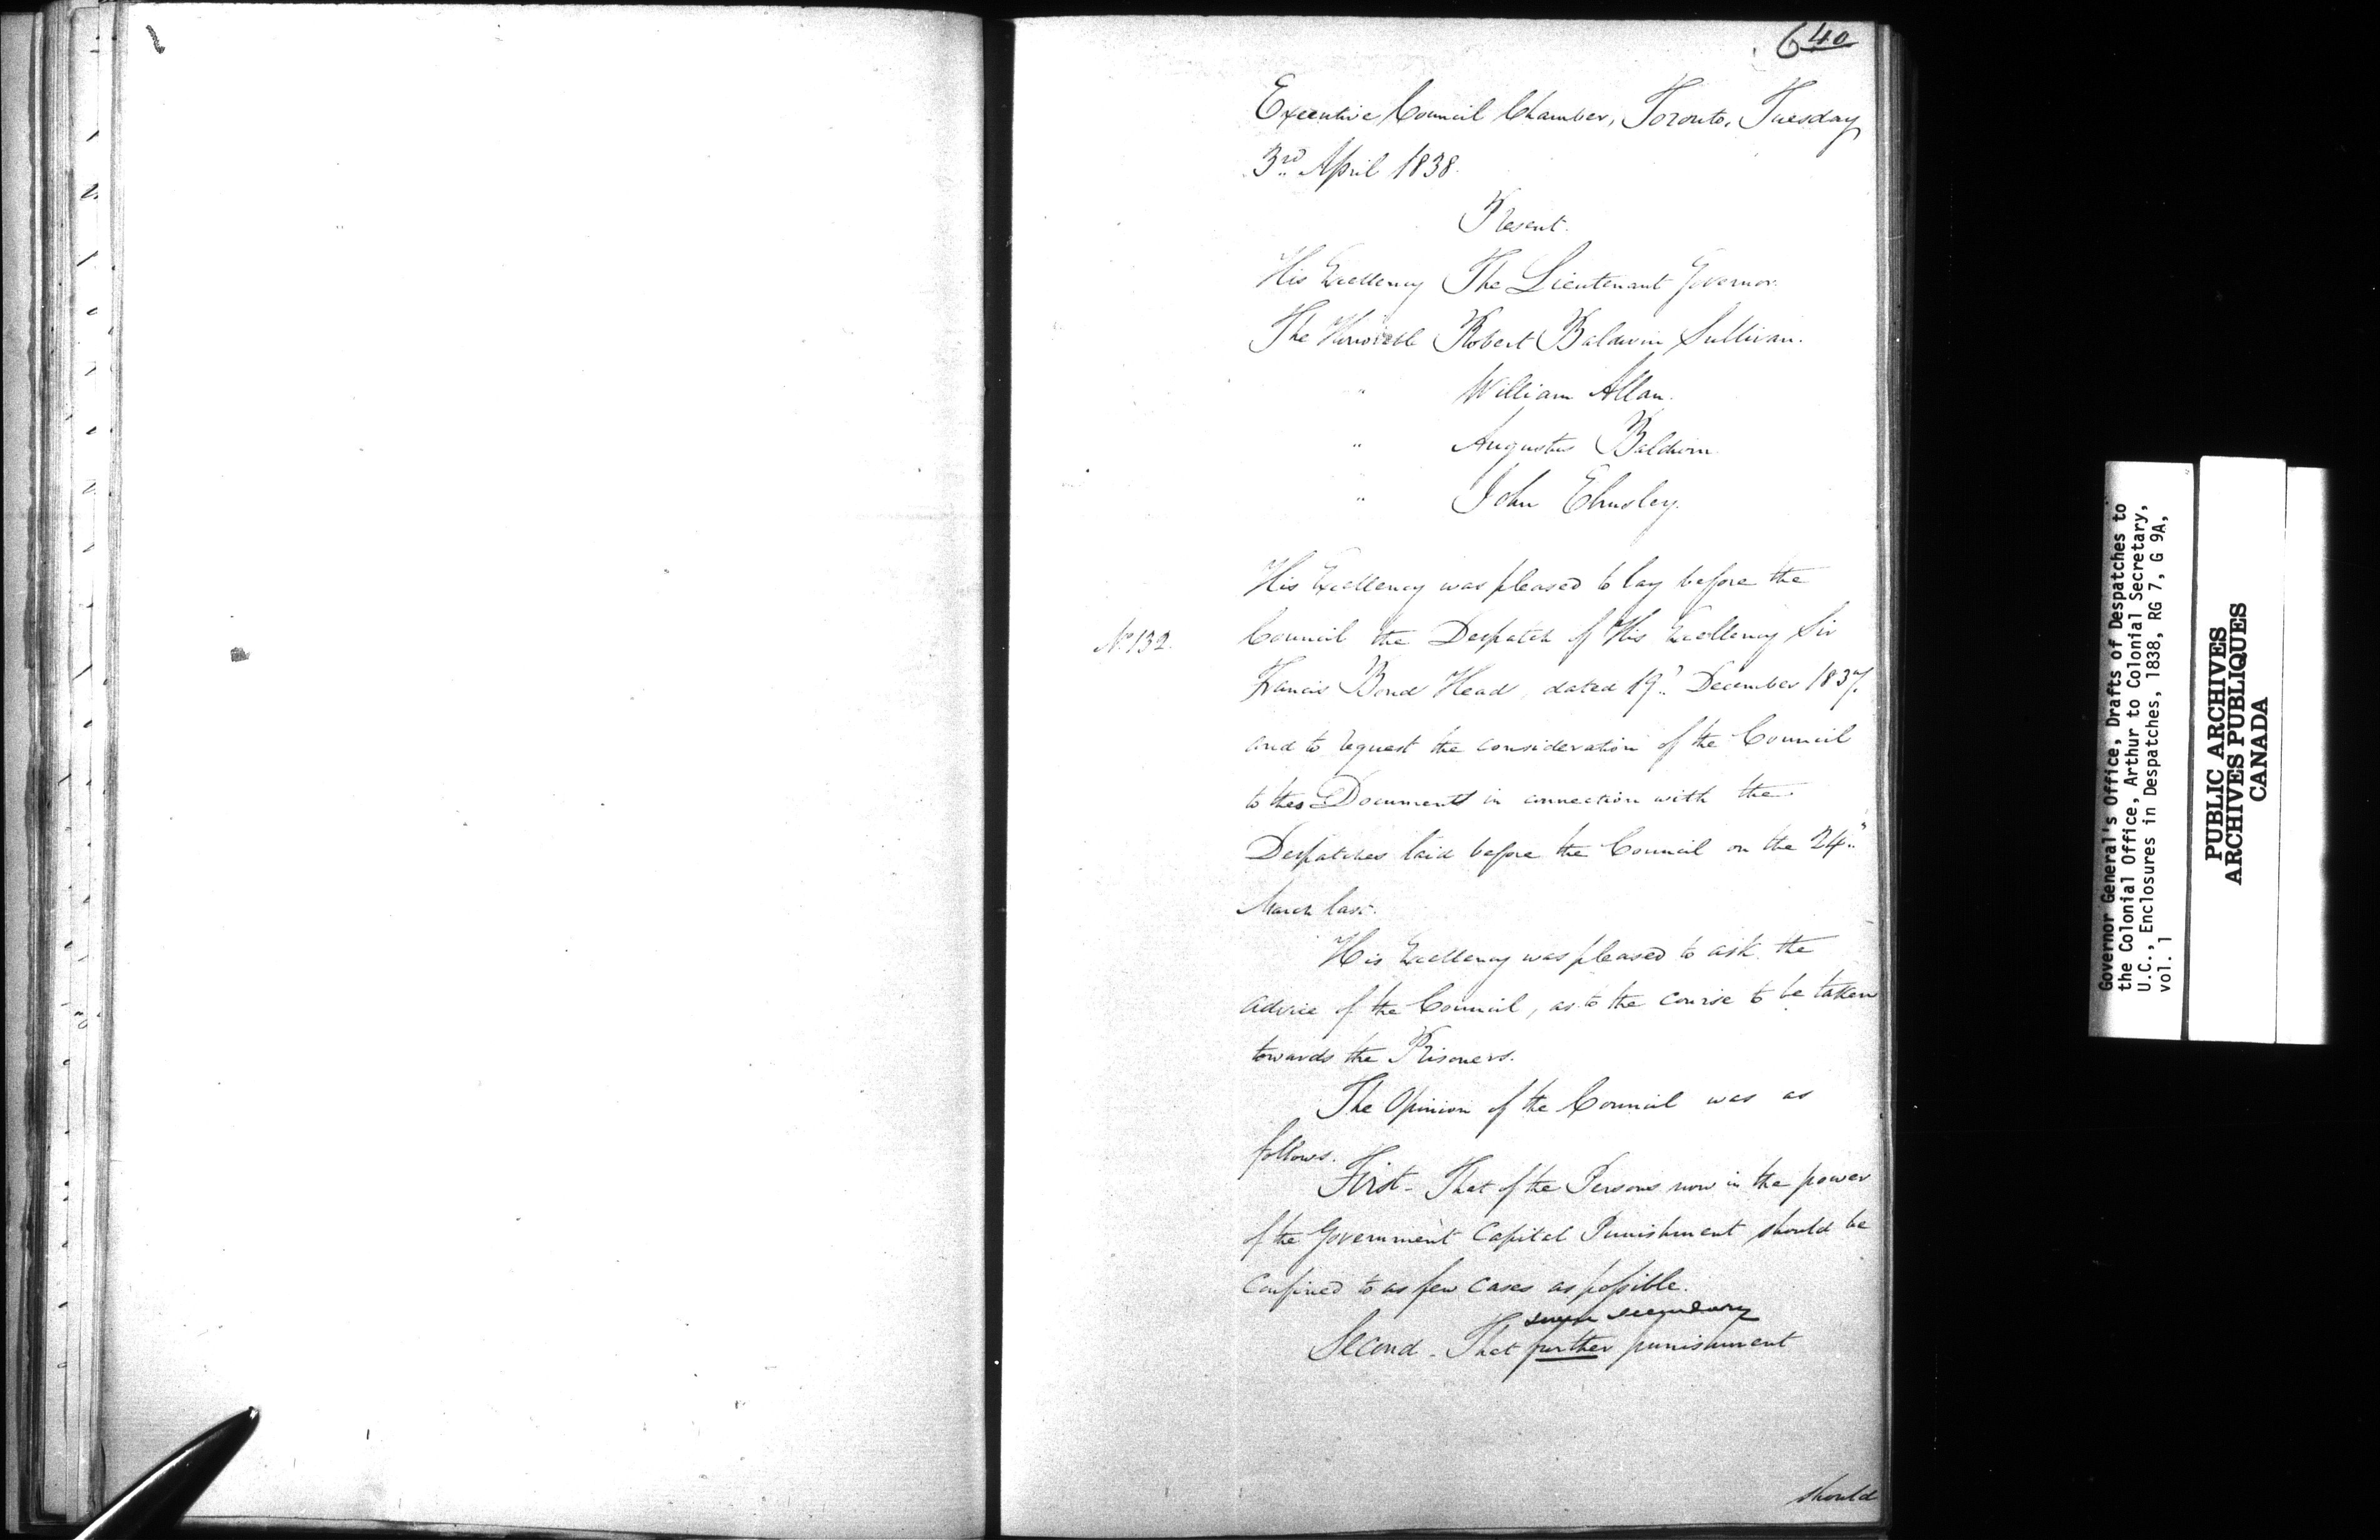 640
Executive Council Chamber, Toronto, Tuesday
3rd April 1838.
Present.
His Excellency The Lieutenant Governor.
The Honorable Robert Baldwin Sullivan.
" William Allan.
" Augustus Baldwin
" John Elmsley.
His Excellency was pleased to lay before the
No 132. Council the Despatch of His Excellency Sir
Francis Bond Head, dated 19th December 1837.
and to request the consideration of the Council
to these Documents in connection with the
Despatches laid before the Council on the 24th
March last.
His Excellency was pleased to ask the
advice of the Council, as to the course to be taken
towards the Prisoners.
The Opinion of the Council was as
follows.
First - That of the Persons now in the power
of the Government Capital Punishment should be
confined to as few cases as possible.
such secondary
Second - That further punishment
should
Governor General's Office, Drafts of Despatches to
the Colonial Office, Arthur to Colonial Secretary,
U.C., Enclosures in Despatches, 1838, RG 7, G 9A,
vol. 1
PUBLIC ARCHIVES
ARCHIVES PUBLIQUES
CANADA